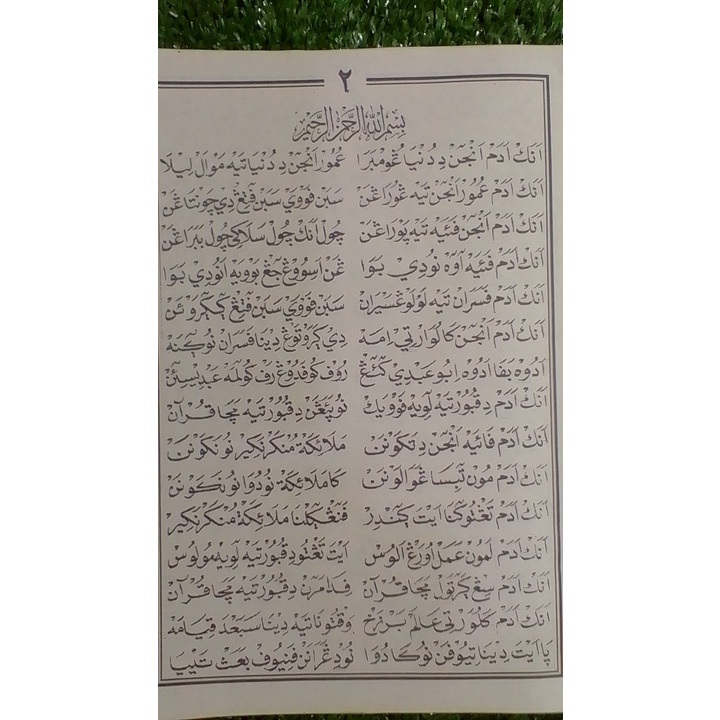 ٢
بِسْمِ اللهِ الرَّحْمٰنِ الرَّحِيْمِ
اَنَكْ اَدَمْ اَنْجَنْ دِ دُنْيَا عُڤومْبَرَا عُمُورْ اَنْجَنْ دِ دُنْيَا تِيَهْ مَوَالْ لِيلَا
اَنَكْ اَدَمْ عُمُورْ اَنْجَنْ تِيَهْ غُورَاغَنْ سَبَنْ فَوَويْ سَبَنْ فَتِغْ دِي چَونْتَاغَنْ
اَنَكْ اَدَمْ اَنْجَنْ فَئِيَهْ تِيَهْ پُورَاغَنْ چُولْ اَنَكْ چُولْ سَلَاكِي چُولْ بَبَرَاغَنْ
اَنَكْ اَدَمْ فَئِيَهْ اَوَهْ نُودِي بَوَا غَنْ اَسُووْغْ جَغْ بَوْوِيَهْ اَنُودِي بَوَا
اَنَكْ اَدَمْ فَسَرَانْ تِيَهْ لَوْلَوغْسَيرَانْ سَبَنْ فَوَويْ سَبَنْ فَتِغْ
اَنَكْ اَدَمْ اَنْجَنْ كَالُوَارْتِي اِمَهْ دِي كَرَوتَوغْ دِينَا فَسَرَانْ نُوكِنَهْ
اَدُوهْ بَفَا اَدُوهْ اِبُو عَبْدِي رُوْفْ كُو فَدُوغْ رَفْ كُولَمَهْ
اَنَكْ اَدَمْ دِ قُبُورْ تِيَهْ لَوِيَهْ فَوَوِيكْ نُوپَئَغَنْ دِ قُبُورْ تِيَهْ مَچَا قُرْآنْ
اَنَكْ اَدَمْ فَائِيَهْ اَنْجَنْ دِ تَكَونَنْ مَلَائِكَةْ مُنْكَرْ نَكِيرْ نُونَكَونَنْ
اَنَكْ اَدَمْ مَونْ تَبِسَا غَوَالَونَنْ كَا مَلَائِكَةْ نُودُوَا نُونَكَونَنْ
اَنَكْ اَدَمْ تَغْتُوكَنَا اَيَتْ مَلَائِكَةْ مُنْكَرْ نَكِيرْ
اَنَكْ اَدَمْ لَمَونْ عَمَلْ اُوْرَغْ اَلُوسْ اَيَتْ تَغْتُو دِ قُبُورْ تِيَهْ لَوِيَهْ مُولُوسْ
اَنَكْ اَدَمْ سِغْ مَچَا قُرْآنْ فَدَامَرَنْ دِ قُبُورْ تِيَهْ مَچَا قُرْآنْ
اَنَكْ اَدَمْ كَلُورْتِي عَالَمْ بَرْزَخْ وَقْتُونَا تِيَهْ دِينَا سَبَعْدَ قِيَامَهْ
پَا اَيَتْ دِينَا تِيُوفَنْ نُوكَادُوَا نُودِغَرَانَنْ فَنِيُوفْ بَعَثْ تَيْيَا